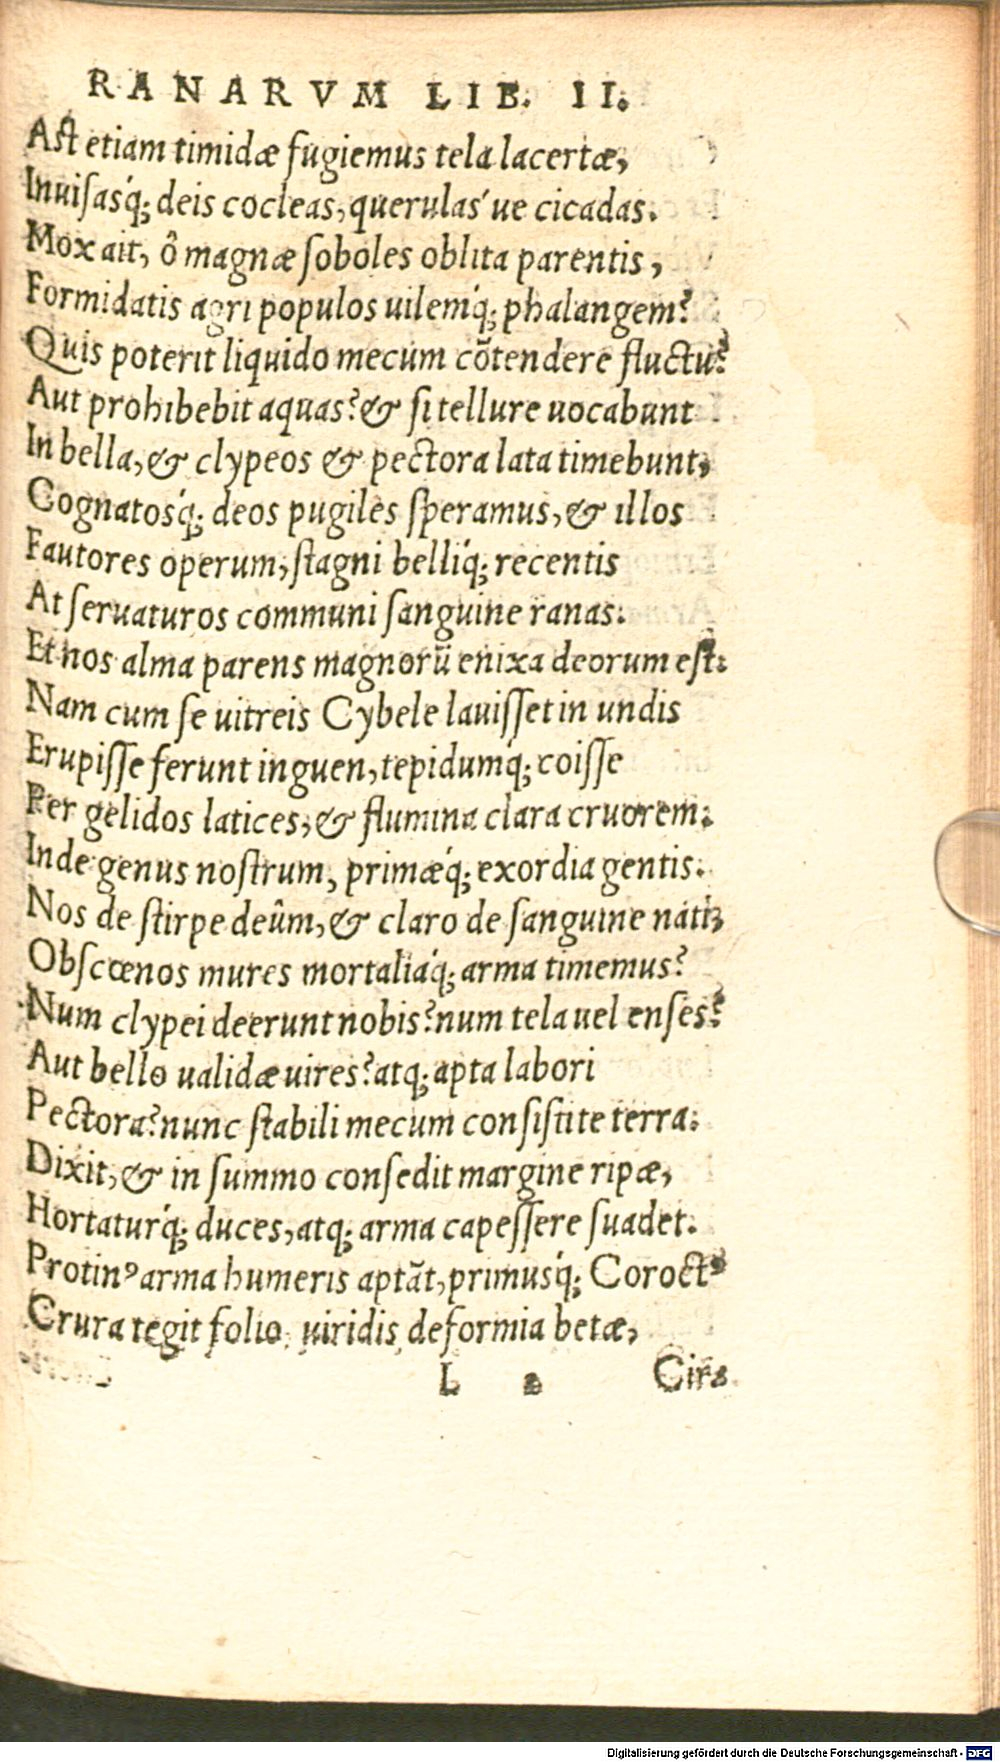 RANARVM LIB. II.
Ast etiam timidæ fugiemus tela lacertæ,
Inuisasq́; deis cocleas, querulas´ue cicadas.
Mox ait, ô magnæ soboles oblita parentis,
Formidatis agri populos uilemq́; phalangem?
Quis poterit liquido mecum cõtendere fluctu?
Aut prohibebit aquas? & si tellure uocabunt
In bella, & clypeos & pectora lata timebunt,
Cognatosq́; deos pugiles speramus, & illos
Fautores operum, stagni belliq́; recentis
At seruaturos communi sanguine ranas.
Et nos alma parens magnorũ enixa deorum est.
Nam cum se uitreis Cybele lauisset in undis
Erupisse ferunt inguen, tepidumq́; coisse
Per gelidos latices, & flumina clara cruorem.
Inde genus nostrum, primæq́; exordia gentis.
Nos de stirpe deûm, & claro de sanguine nati,
Obscœnos mures mortaliaq́; arma timemus?
Num clypei deerunt nobis? num tela uel enses?
Aut bello ualidæ uires? atq; apta labori
Pectora? nunc stabili mecum consistite terra.
Dixit, & in summo consedit margine ripæ,
Hortaturq́; duces, atq; arma capessere suadet.
Protinꝰ arma humeris aptãt, primusq́; Coroctꝰ
Crura tegit folio uiridis deformia betæ,
L 2 Cira
Digitalisierung gefördert durch die Deutsche Forschungsgemeinschaft - DFG